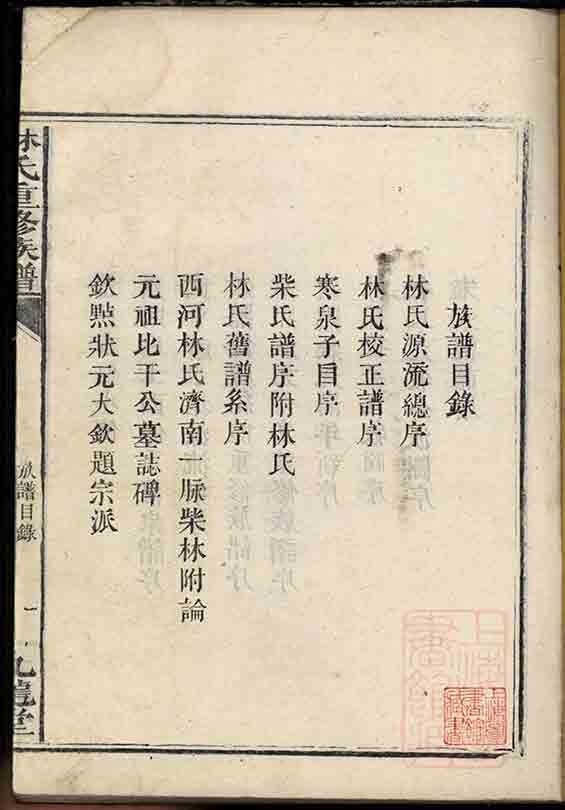 族譜目錄
林氏源流總序
林氏校正譜序
寒泉子自序
柴氏譜序附林氏
林氏舊譜系序
西河林氏濟南一脉柴林附論
元祖比干公墓誌碑
欽㸃狀元大欽題宗派
林氏重修族譜
族譜目錄
一
九龍堂